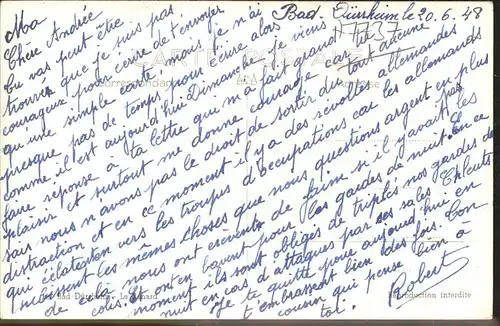 Bad. Dürkheim le 20.6.48
Ma
Chère Andrée
CARTE POSTALE
Correspondance
tu vas peut être
trouver que je suis pas
courageux, pour écrire de t'envoyer
qu'une simple carte, mais je n'ai
presque pas de temps pour écrire alors
comme il est aujourd'hui Dimanche je viens
faire réponse à ta lettre qui m'a fait grand
plaisir et surtout me donne courage car
sais nous n'avons pas le droit de sortir du fort aucune
distraction et en ce moment il y a des révoltes allemandes
qui éclatent vers les troupes d'occupations car les allemands
subissent les mêmes choses que nous questions argent en plus
de cela nous ont de faim si il y avait pas les
colis. et on en bavent pour les gardes de nuit. En ce
moment ils sont obligés de triplés nos gardes de
nuit en cas d'attaques par ses sales Chleuts
Je te quitte pour aujourd'hui en
t'embrassent bien des fois. Ton
cousin qui pense bien à
toi.
Robert
Bad Dürkheim
Reproduction interdite